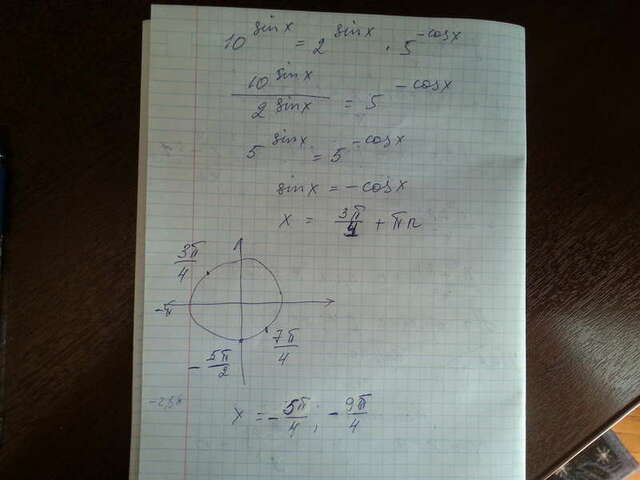 10^sinx = 2^sinx · 5^-cosx
10^sinx / 2^sinx = 5^-cosx
5^sinx = 5^-cosx
sinx = -cosx
x = 3π/4 + πn
3π/4
-π
7π/4
-5π/2
-2,5π
x = -5π/4; -9π/4